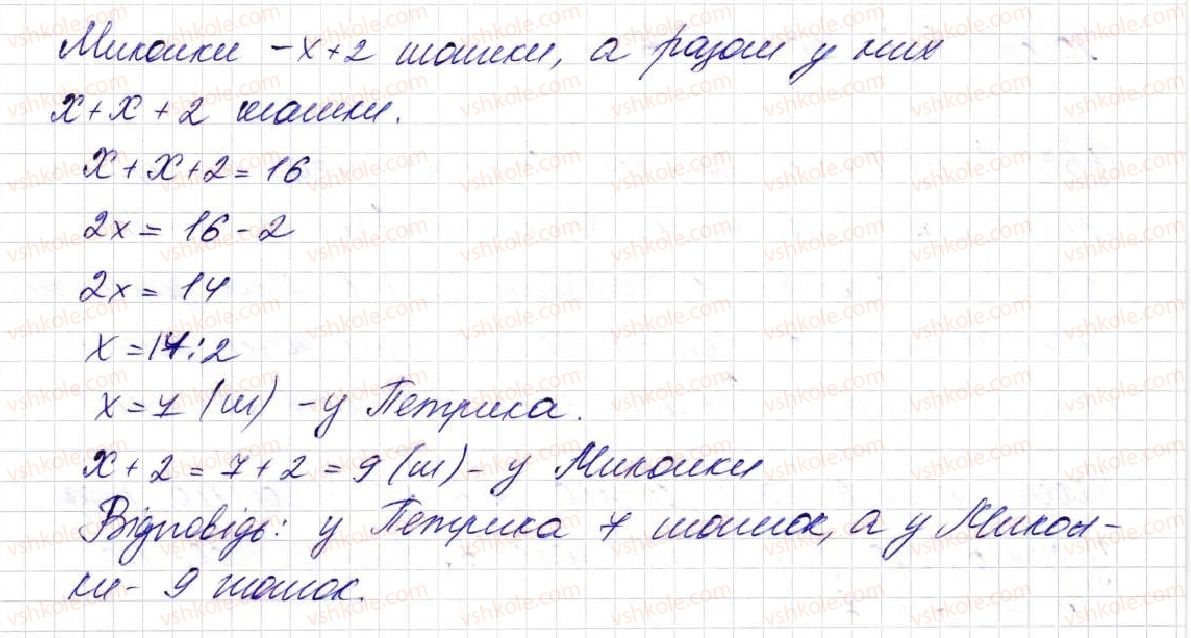 Миколки - x+2 шашки, а разом у них
x+x+2 шашки.
x+x+2=16
2x=16-2
2x=14
x=14:2
x=7 (ш) - у Петрика.
x+2=7+2=9 (ш) - у Миколки
Відповідь: у Петрика 7 шашок, а у Микол-
ки - 9 шашок.